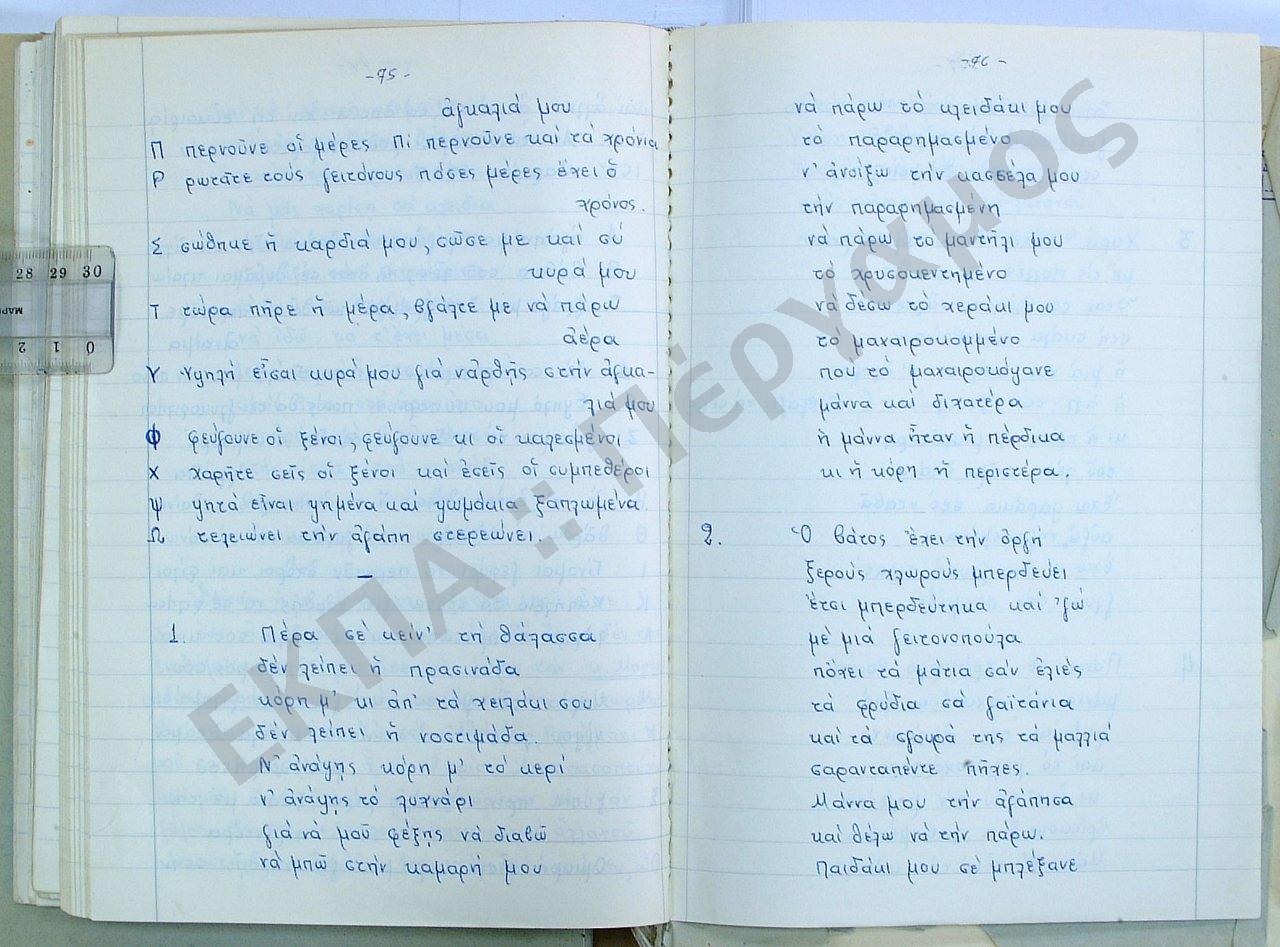 -75-
ἀγκαλιά μου
Π περνοῦνε οἱ μέρες Πί περνοῦνε καί τά χρόνια
Ρ ρωτᾶτε τούς γειτόνους πόσες μέρες ἔχει ὁ
χρόνος.
Σ σώθηκε ἡ καρδιά μου, σῶσε με καί σύ
κυρά μου
Τ τώρα πῆρε ἡ μέρα, βγάλτε με νά πάρω
ἀέρα
Υ Υψηλή εἶσαι κυρά μου γιά νἀρθῆς στήν ἀγκα-
λιά μου
Φ φεύγουνε οἱ ξένοι, φεύγουνε κι οἱ καλεσμένοι
Χ χαρῆτε σεῖς οἱ ξένοι καί ἐσεῖς οἱ συμπεθέροι
Ψ ψητά εἶναι ψημένα καί ψωμάκια ξαπλωμένα
Ω τελειώνει τήν ἀγάπη στερεώνει.
1. Πέρα σέ κείν' τή θάλασσα
δέν λείπει ἡ πρασινάδα
κόρη μ' κι ἀπ' τά χειλάκι σου
δέν λείπει ἡ νοστιμάδα
Ν' ἀνάψης κόρη μ' τό κερί
ν' ἀνάψης τό λυχνάρι
γιά νά μοῦ φέξης νά διαβῶ
νά μπῶ στήν καμαρή μου
-76-
νά πάρω τό κλειδάκι μου
τό παραρημασμένο
ν' ἀνοίξω τήν κασσέλα μου
τήν παραρημασμένη
νά πάρω το μαντήλι μου
τό χρυσοκεντημένο
νά δέσω τό χεράκι μου
τό μαχαιροκομμένο
πού τό μαχαιροκόψανε
μάννα καί διχατέρα
ἡ μάννα ἦταν ἡ πέρδικα
κι ἡ κόρη ἡ περιστέρα.
2. Ὁ βάτος ἔχει τήν ὀργή
ξερούς χλωρούς μπερδεύει
ἔτσι μπερδεύτηκα καί 'γώ
μέ μιά γειτονοπούλα
πὄχει τά μάτια σάν ἐλιές
τά φρύδια σά γαϊτάνια
καί τά σγουρά της τά μαλλιά
σαρανταπέντε πῆχες.
Μάννα μου τήν ἀγάπησα
καί θέλω νά τήν πάρω.
Παιδάκι μου σέ μπλέξανε
ΕΚΠΑ :: Πέργαμος
28 29 30
2 1 0